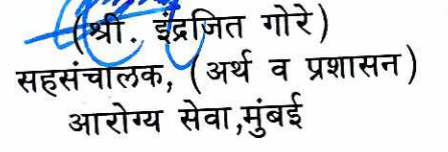 (श्री. इंद्रजित गोरे)
सहसंचालक, (अर्थ व प्रशासन)
आरोग्य सेवा,मुंबई